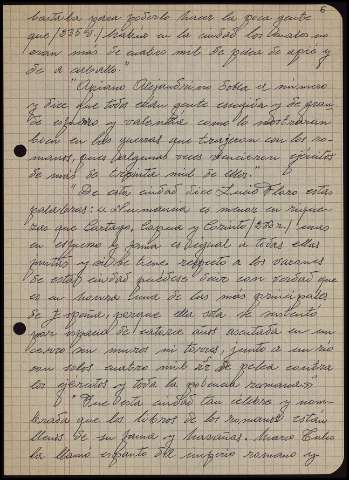 6
bastaba para poderlo hacer la poca gente
que /235 v/. había en la ciudad los cuales no
eran más de cuatro mil de pelea de a pie y
de a caballo."
"Apiano Alejandrino dobla el número
y dice que toda eran gente escogida y de gran
esfuerzo y valentía como lo mostraron
bien en las guerras que trajeron con los ro-
manos, pues algunas veces vencieron ejércitos
de más de treinta mil de ellos."
"De esta ciudad dice Lucio Floro estas
palabras: « Numancia es menor en rique-
zas que Cartago, Capua y Corinto /232 r./ mas
en esfuerzo y honra es igual a todas ellas
juntas y si se tiene respeto a los varones
de esta ciudad puédese decir con verdad que
es en honra una de las más principales
de España, porque ella sola se sustentó
por espacio de catorce años asentada en un
cerro sin muros ni torres, junto a un río
con solos cuatro mil de pelea contra
los ejércitos y toda la potencia romana».
"Fue esta ciudad tan célebre y nom-
brada que los libros de los romanos están
llenos de su fama y hazañas. Marco Tulio
la llama espanto del imperio romano y